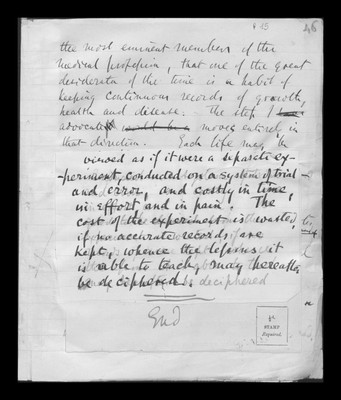 46
the most eminent members of the
medical profession, that one of the great
desiderata of the time is a habit of
keeping continuous records of growth,
health and disease. – the step I
advocate moves entirely in
that direction. Each life may be
viewed as if it were a separate ex-
-periment, conducted on a system of trial
and error, and costly in time,
in effort and in pain. The
cost of the experiment is wasted
if no accurate records are
kept, whence the lessons it
is able to teach, may thereafter
be deciphered. deciphered
End
STAMP
Required.